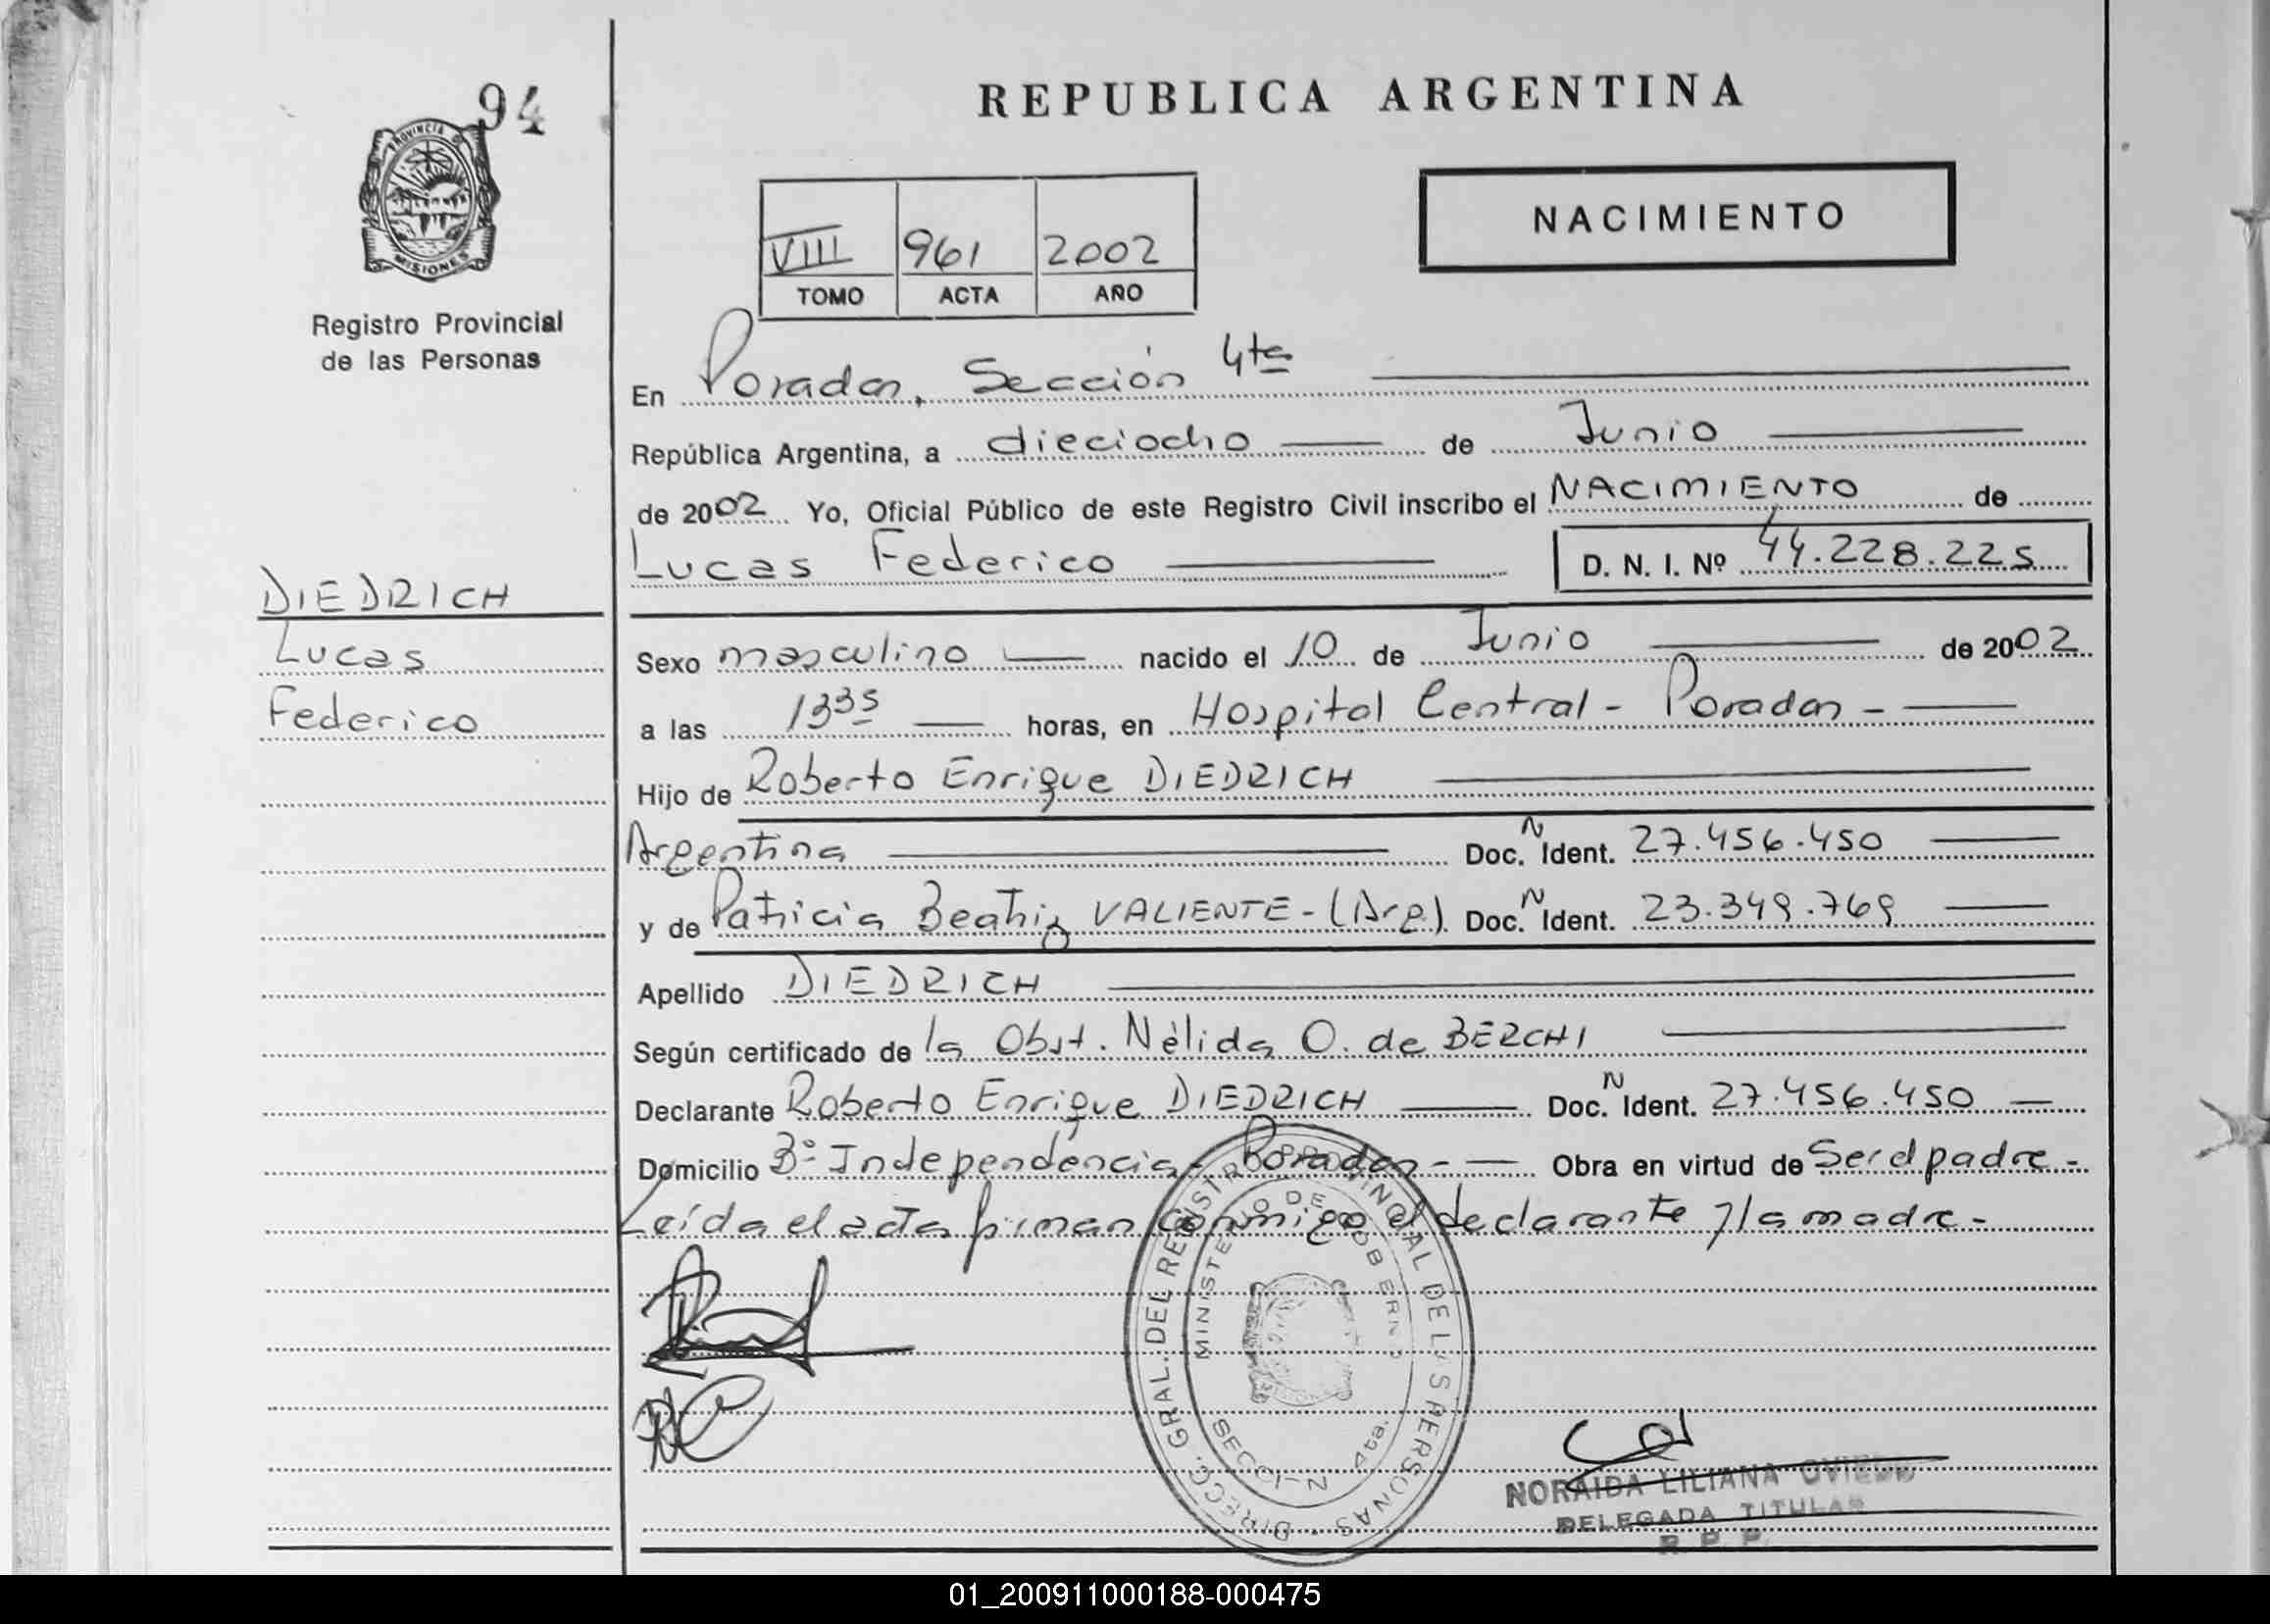 94
PROVINCIA DE
MISIONES
Registro Provincial
de las Personas
DIEDRICH
Lucas
Federico
REPUBLICA ARGENTINA
VIII 961 2002
TOMO ACTA AÑO
NACIMIENTO
En Posadas, Sección 4ta
República Argentina, a dieciocho de Junio
de 2002 Yo, Oficial Público de este Registro Civil inscribo el NACIMIENTO de
Lucas Federico D. N. I. Nº 44.228.225
Sexo masculino nacido el 10 de Junio de 2002
a las 13 35 horas, en Hospital Central - Posadas -
Hijo de Roberto Enrique DIEDRICH
Argentina Doc. N Ident. 27.456.450
y de Patricia Beatriz VALIENTE - (Arg) Doc. N Ident. 23.349.769
Apellido DIEDRICH
Según certificado de la Obst. Nélida O. de BERCHI
Declarante Roberto Enrique DIEDRICH Doc. N Ident. 27.456.450
Domicilio Bº Independencia - Posadas - Obra en virtud de Ser el padre -
Leída el acta firman conmigo el declarante y la madre -
DIRECC. GRAL. DEL REGISTRO PROVINCIAL DE LAS PERSONAS
MINISTERIO DE GOBIERNO
SECCION 4ta.
NORAIDA LILIANA OVIEDO
DELEGADA TITULAR
R. P. P.
01_200911000188-000475